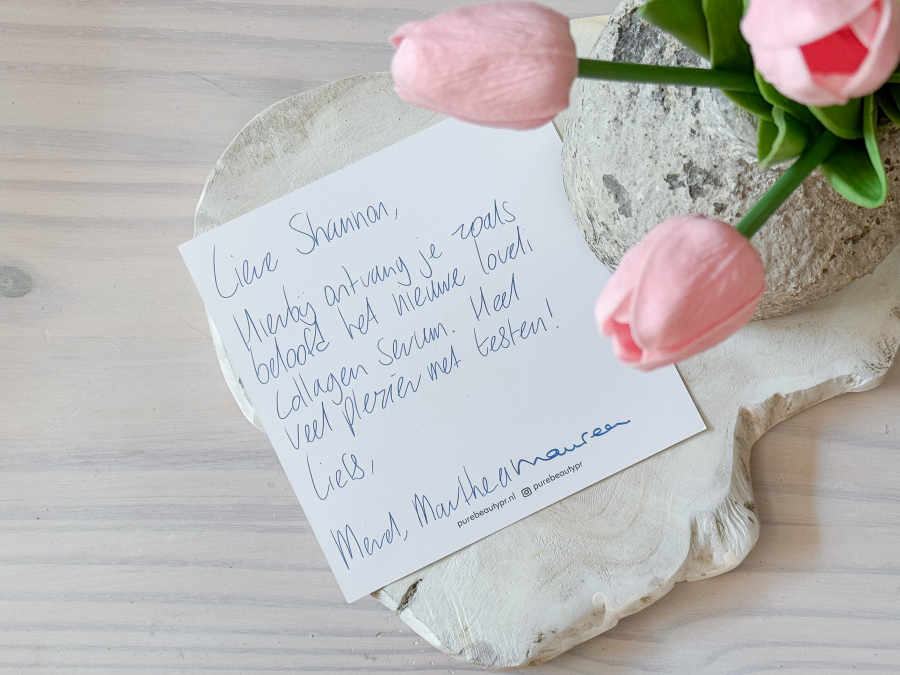 Lieve Shannon,
Hierbij ontvang je zoals
beloofd het nieuwe lovli
collagen serum. Heel
veel plezier met testen!
Liefs,
Merel, Marthe Maureen
purebeautypr.nl purebeautypr